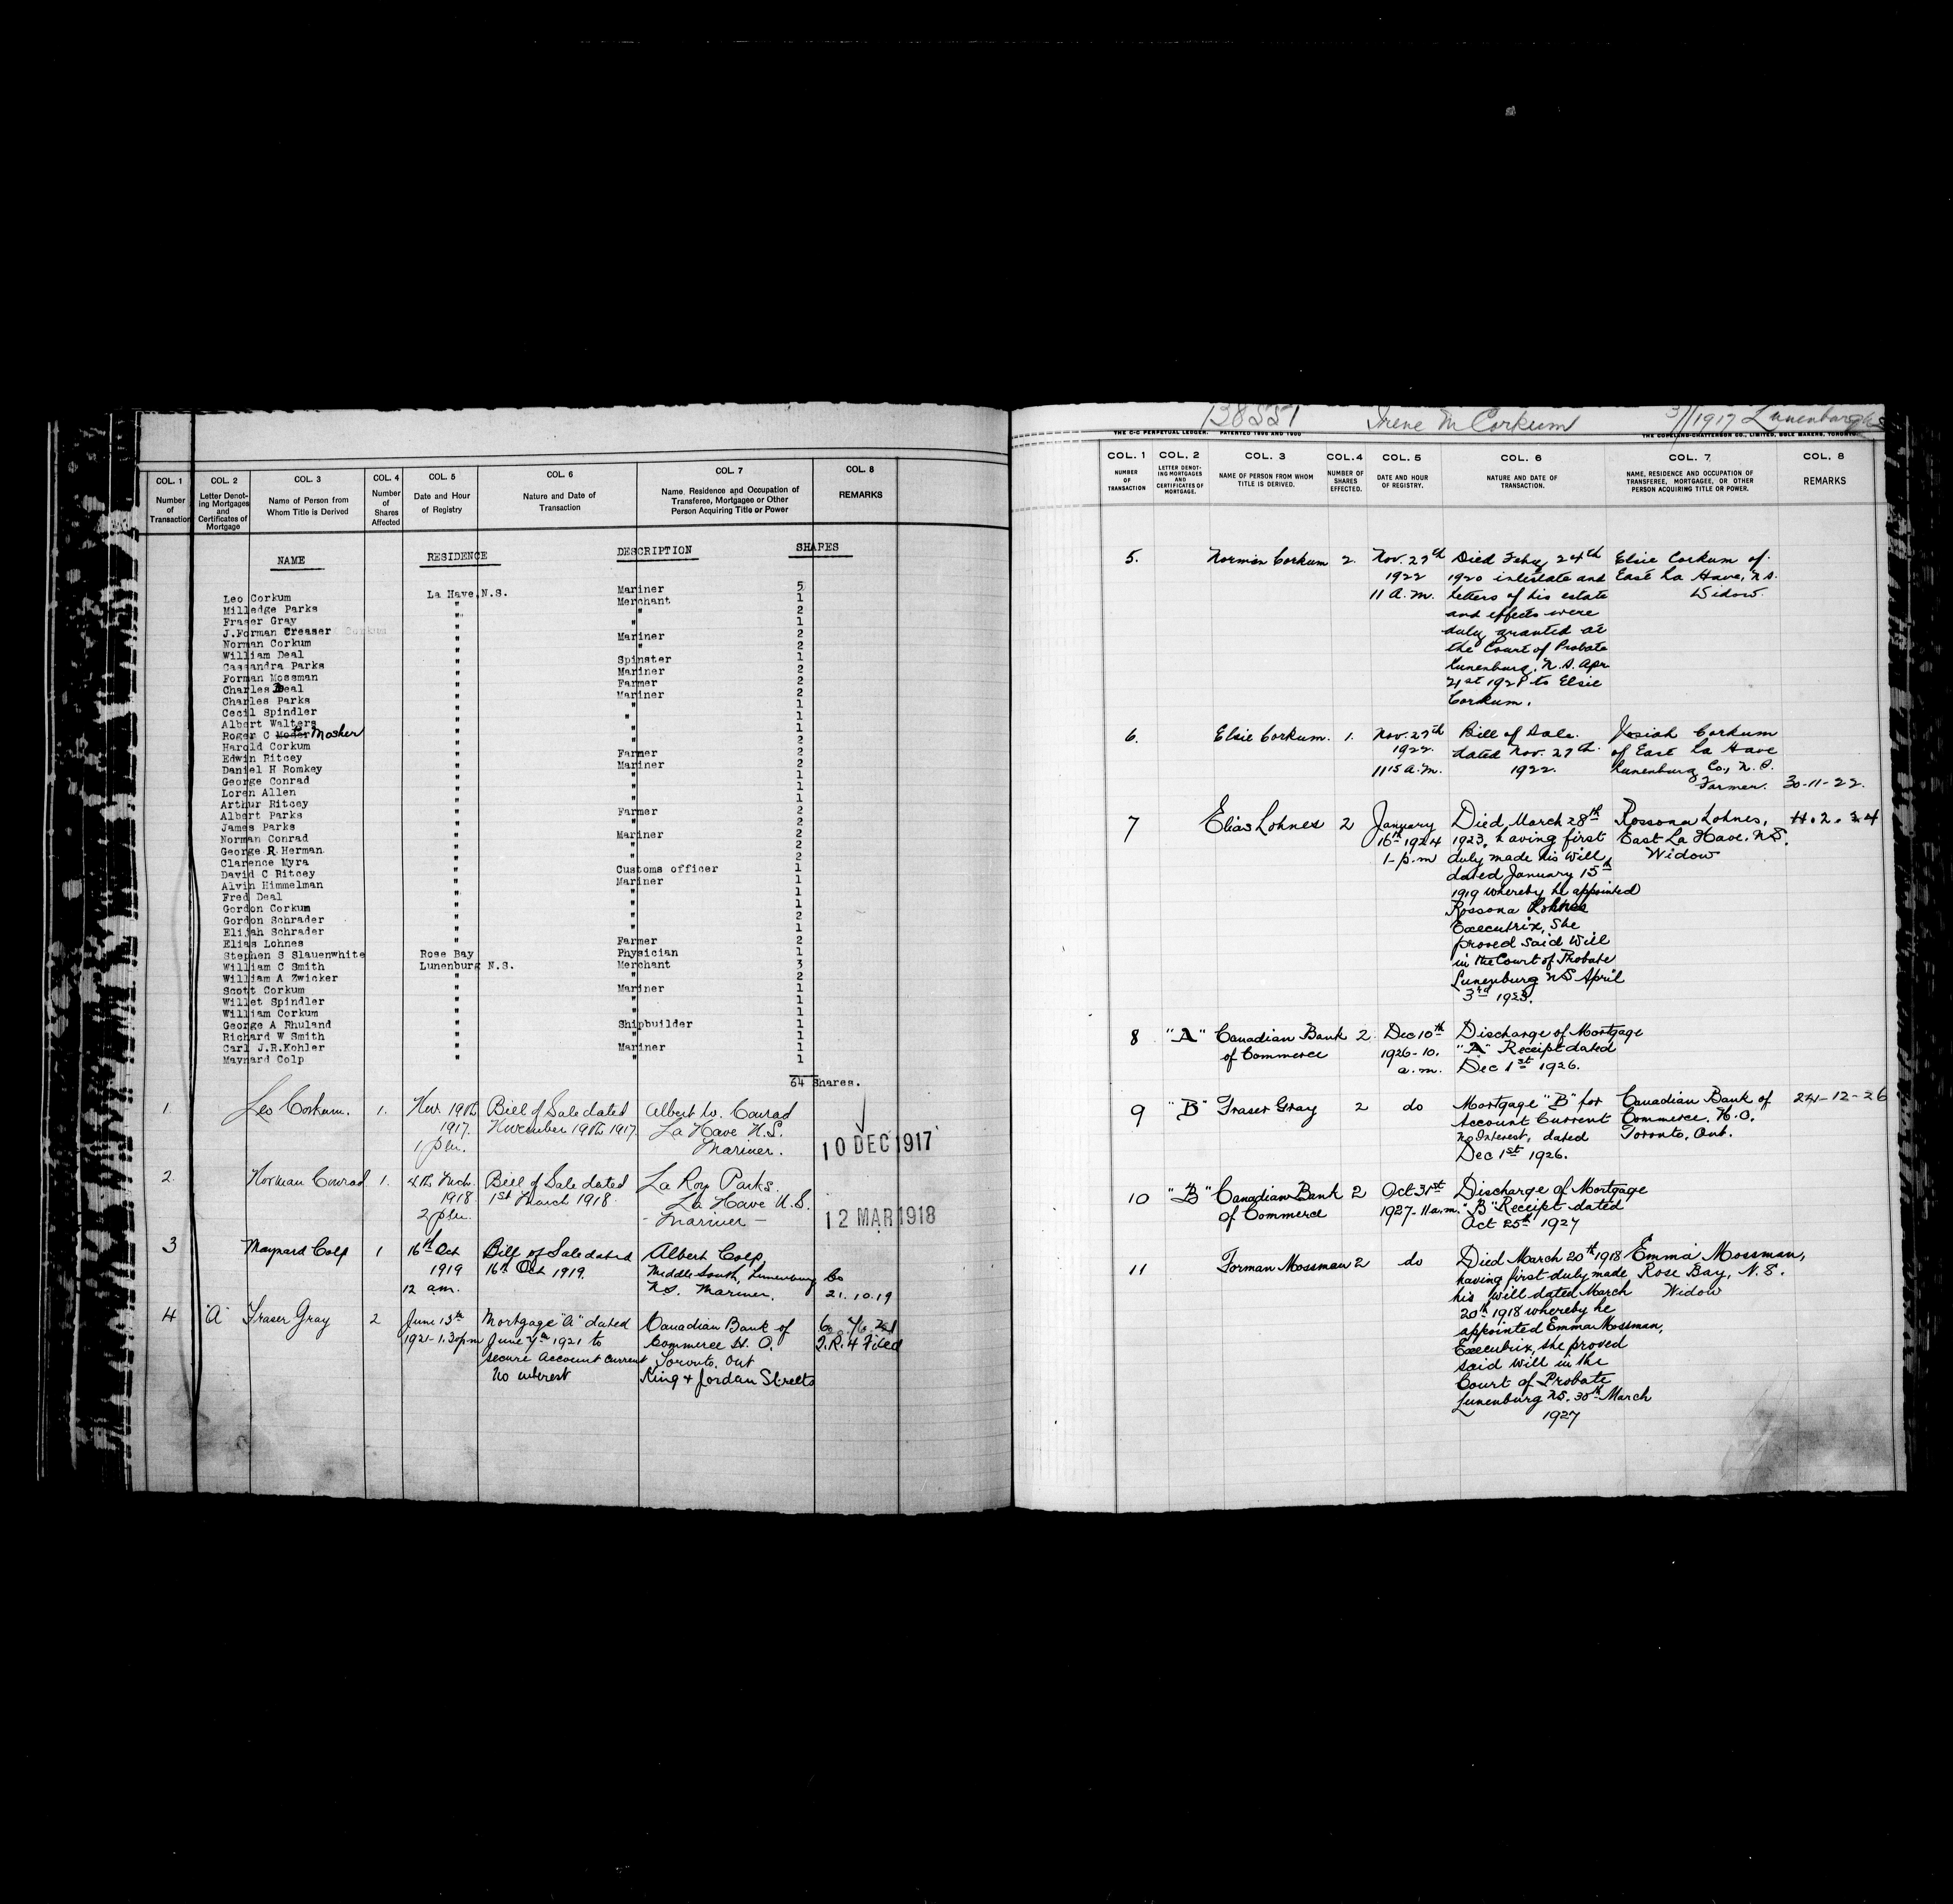 COL. 1 COL. 2 COL. 3 COL. 4 COL. 5 COL. 6 COL. 7 COL. 8
Number of Transaction
Letter Denoting Mortgages and Certificates of Mortgage
Name of Person from Whom Title is Derived
Number of Shares Affected
Date and Hour of Registry
Nature and Date of Transaction
Name, Residence and Occupation of Transferee, Mortgagee or Other Person Acquiring Title or Power
REMARKS
NAME RESIDENCE DESCRIPTION SHARES
Leo Corkum La Have N.S. Mariner 5
Milledge Parks " Merchant 1
Fraser Gray " " 2
J.Forman Creaser " " 1
Norman Corkum " Mariner 2
William Deal " " 2
Cassandra Parks " Spinster 1
Forman Mossman " Mariner 2
Charles Deal " Farmer 2
Charles Parks " Mariner 2
Cecil Spindler " " 1
Albert Walters " " 1
Roger C Mosher " " 1
Harold Corkum " " 2
Edwin Ritcey " Farmer 2
Daniel H Romkey " Mariner 2
George Conrad " " 1
Loren Allen " " 1
Arthur Ritcey " " 1
Albert Parks " Farmer 2
James Parks " " 2
Norman Conrad " Mariner 2
George R Herman " " 2
Clarence Myra " " 2
David C Ritcey " Customs officer 1
Alvin Himmelman " Mariner 1
Fred Deal " " 1
Gordon Corkum " " 1
Gordon Schrader " " 2
Elijah Schrader " " 1
Elias Lohnes " Farmer 2
Stephen S Slauenwhite Rose Bay Physician 1
William C Smith Lunenburg N.S. Merchant 3
William A Zwicker " " 2
Scott Corkum " Mariner 1
Willet Spindler " " 1
William Corkum " " 1
George A Rhuland " Shipbuilder 1
Richard W Smith " " 1
Carl J.R.Kohler " Mariner 1
Maynard Colp " " 1
64 Shares.
1. Leo Corkum. 1. Nov. 19th Bill of Sale dated Albert W. Conrad
1917. November 19th 1917. La Have N.S.
1 pm. Mariner. 10 DEC 1917
2. Norman Conrad 1. 4th Mch. Bill of Sale dated La Roy Parks.
1918 1st March 1918. La Have N.S.
2 pm. - Mariner - 12 MAR 1918
3 Maynard Colp 1 16th Oct Bill of Sale dated Albert Colp,
1919 16th Oct 1919. Middle South, Lunenburg Co
12 am. N.S. Mariner. 21.10.19
4 "A" Fraser Gray 2 June 13th Mortgage "A" dated Canadian Bank of
1921-1.30pm June 7th 1921 to Commerce H. O. Q.R. 4 Filed
secure Account Current Toronto. Ont
No interest King & Jordan Streets
138551 Irene M Corkum 3/1917 Lunenburg NS
THE C-C PERPETUAL LEDGER. PATENTED 1896 AND 1900 THE COPELAND-CHATTERSON CO., LIMITED, SOLE MAKERS, TORONTO.
COL. 1 COL. 2 COL. 3 COL.4 COL. 5 COL. 6 COL. 7. COL. 8
NUMBER OF TRANSACTION
LETTER DENOTING MORTGAGES AND CERTIFICATES OF MORTGAGE.
NAME OF PERSON FROM WHOM TITLE IS DERIVED.
NUMBER OF SHARES EFFECTED.
DATE AND HOUR OF REGISTRY.
NATURE AND DATE OF TRANSACTION.
NAME, RESIDENCE AND OCCUPATION OF TRANSFEREE, MORTGAGEE, OR OTHER PERSON ACQUIRING TITLE OR POWER.
REMARKS
5. Norman Corkum 2. Nov. 27th Died Feby 24th Elsie Corkum of
1922 1920 intestate and East La Have, N.S.
11 A.M. Letters of his estate Widow.
and effects were
duly granted at
the Court of Probate
Lunenburg. N.S. Apr
21st 1921 to Elsie
Corkum.
6. Elsie Corkum. 1. Nov. 27th Bill of Sale. Josiah Corkum
1922. dated Nov. 27th. of East La Have
11 15 A.M. 1922. Lunenburg Co., N.S.
Farmer. 30-11-22.
7 Elias Lohnes 2 January Died March 28th Rossona Lohnes, 4.2.24
16th 1924 1923, having first East La Have. N.S.
1-p.m duly made his will, Widow
dated January 15th
1919 whereby he appointed
Rossona Lohnes
Executrix, She
proved said Will
in the Court of Probate
Lunenburg NS April
3rd 1923.
8 "A" Canadian Bank 2 Dec 10th Discharge of Mortgage
of Commerce 1926-10. "A" Receipt dated
a.m. Dec 1st 1926.
9 "B" Fraser Gray 2 do Mortgage "B" for Canadian Bank of 24-12-26
Account Current Commerce, H.O.
No Interest, dated Toronto, Ont.
Dec 1st 1926.
10 "B" Canadian Bank 2 Oct 31st Discharge of Mortgage
of Commerce 1927-11a.m. "B" Receipt dated
Oct 25th 1927
11 Forman Mossman 2 do Died March 20th 1918 Emma Mossman,
having first duly made Rose Bay, N.S.
his will dated March Widow
20th 1918 whereby he
appointed Emma Mossman,
Executrix, she proved
said will in the
Court of Probate
Lunenburg NS. 30th March
1927